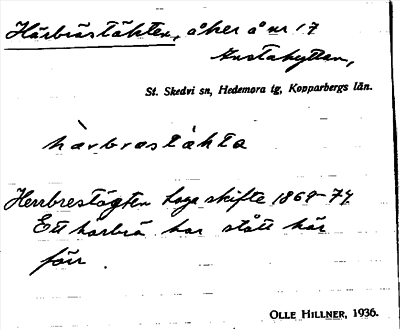 Härbrästäkten, åker å nr 17
Anstahyttan,
St. Skedvi sn, Hedemora tg, Kopparbergs län.
hà̀rbrastä̀kta
Herrbrestägten Laga skifte 1869-74.
Ett härbrä har stått här
förr
OLLE HILLNER, 1936.